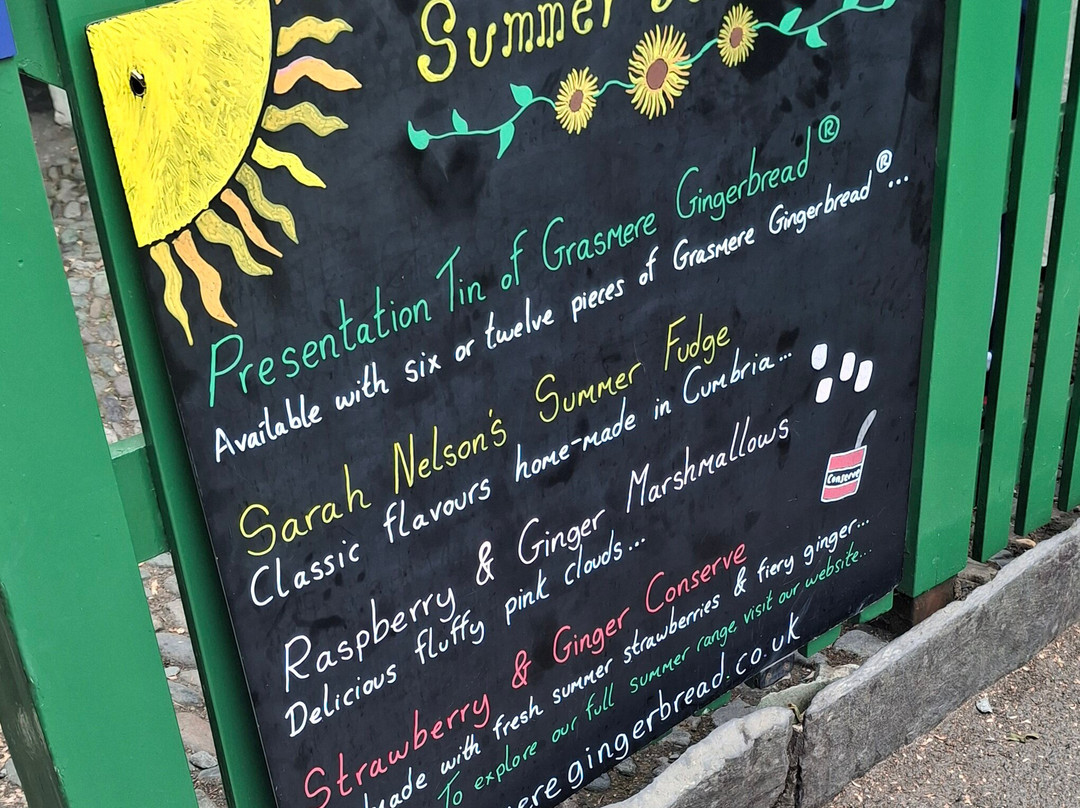 Summer
Presentation Tin of Grasmere Gingerbread®
Available with six or twelve pieces of Grasmere Gingerbread®...
Sarah Nelson's Summer Fudge
Classic flavours home-made in Cumbria...
Raspberry & Ginger Marshmallows
Delicious fluffy pink clouds...
Conserve
Strawberry & Ginger Conserve
made with fresh summer strawberries & fiery ginger...
To explore our full summer range visit our website...
ere gingerbread.co.uk